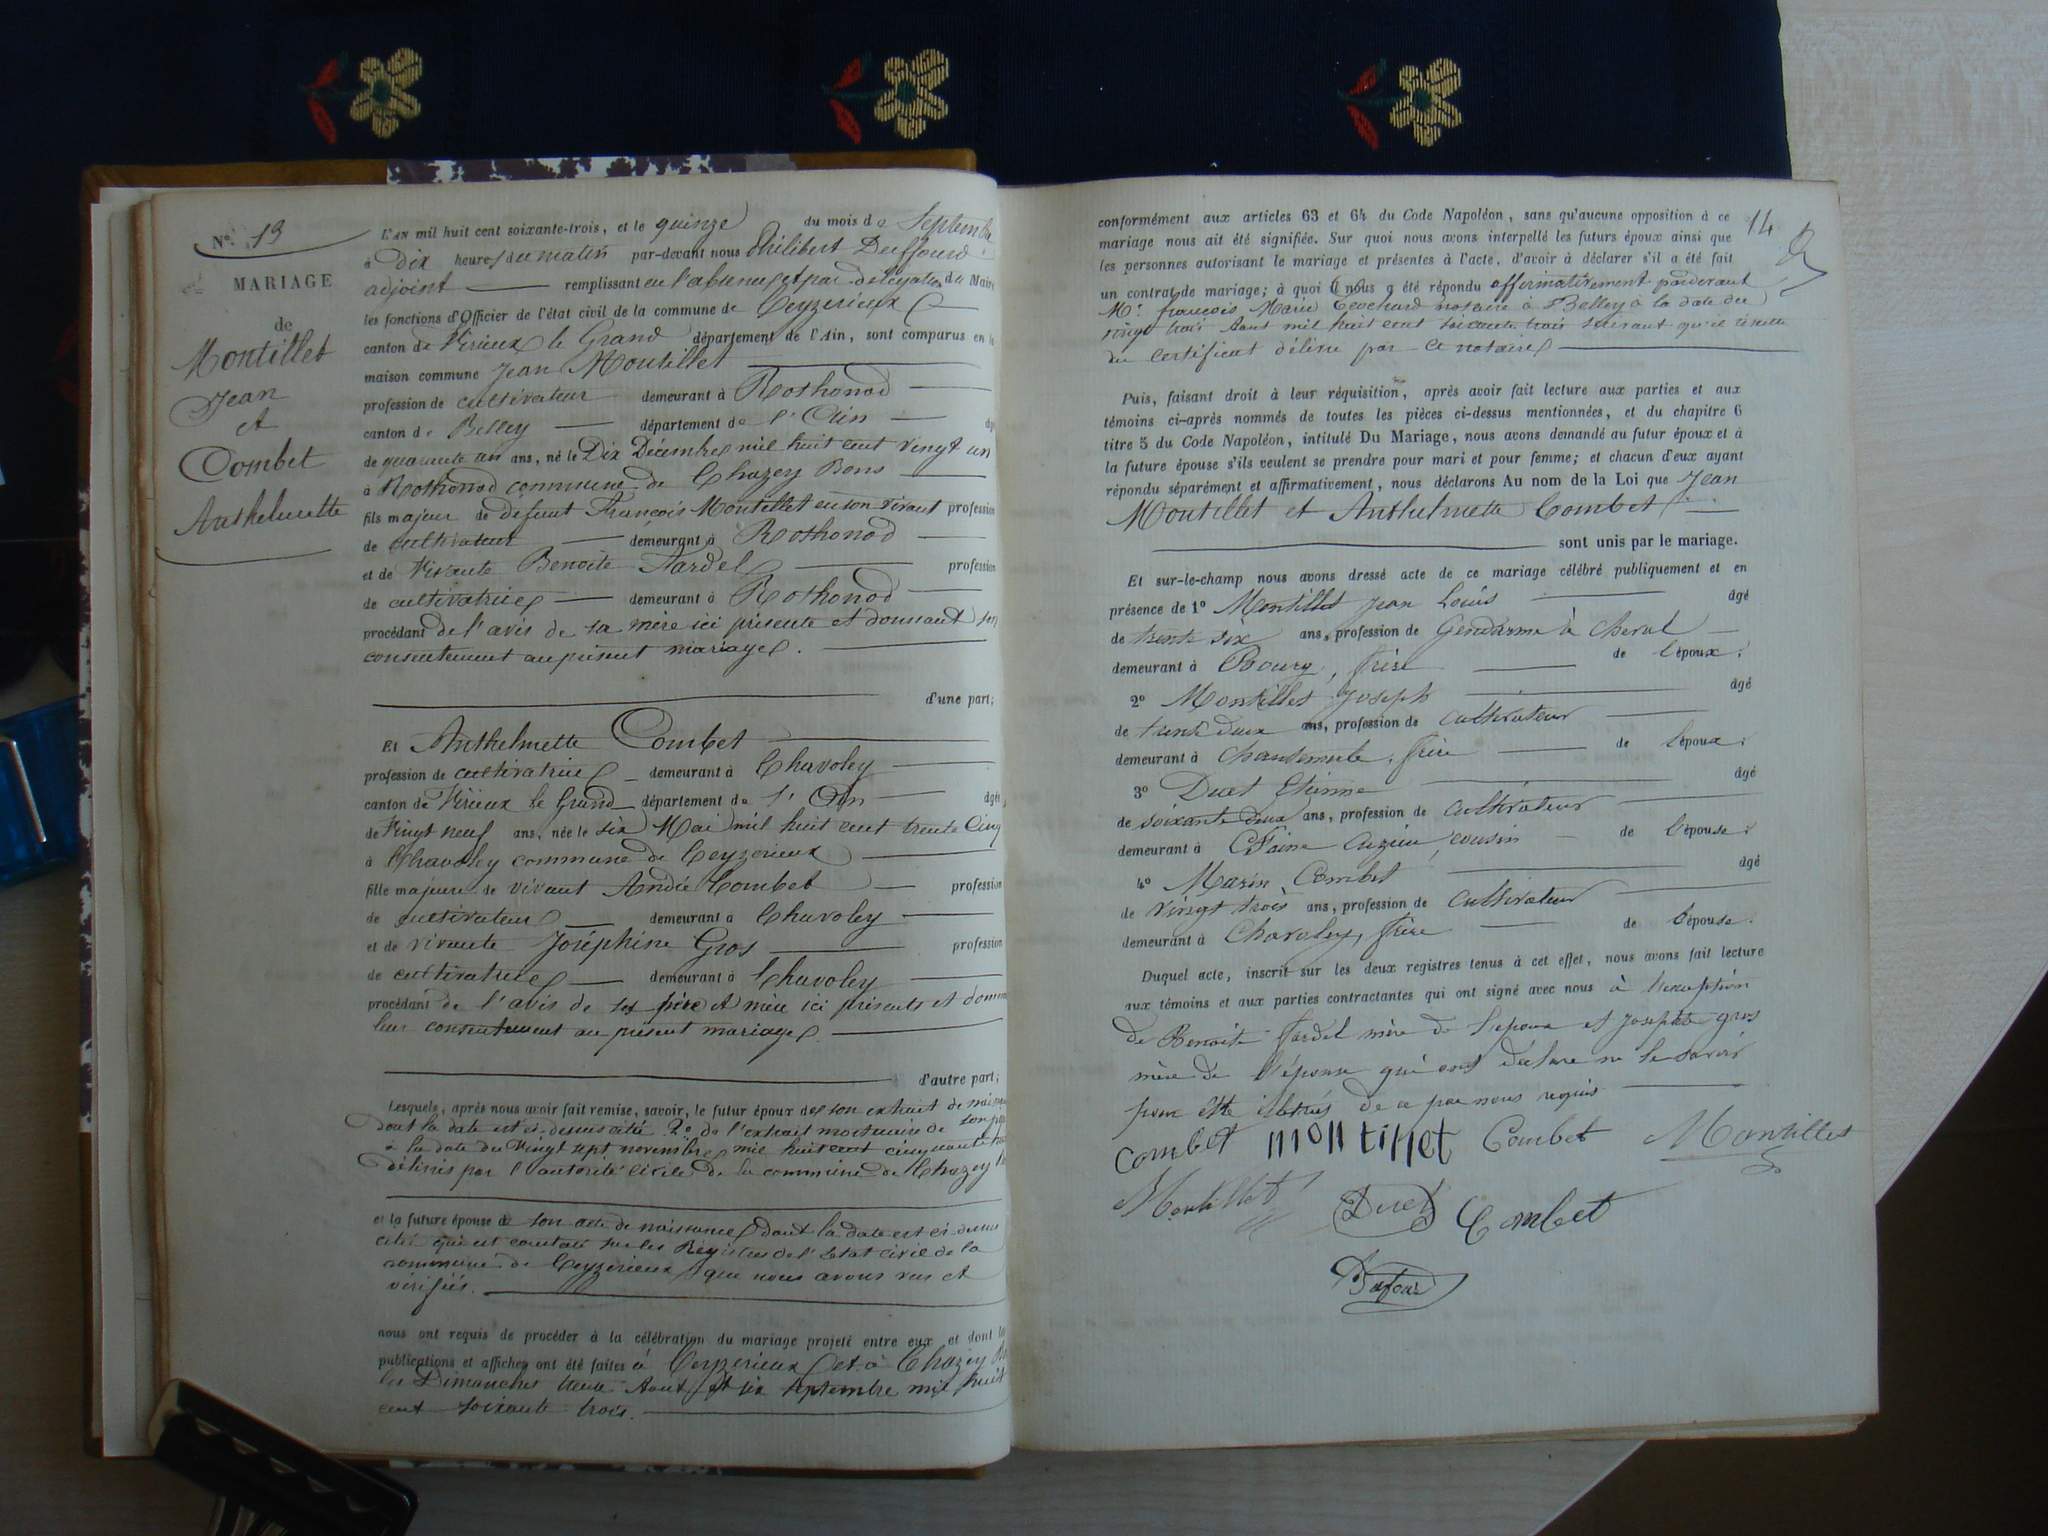 N° 13
MARIAGE
de
Montillet
Jean
et
Combet
Anthelmette
L'AN mil huit cent soixante-trois, et le quinze du mois de Septembre
à Dix heures du matin par-devant nous Philibert Duffourd
adjoint remplissant en l'absence et par délégation du Maire
les fonctions d'Officier de l'état civil de la commune de Ceyzerieux
canton de Virieux le Grand département de l'Ain, sont comparus en la
maison commune Jean Montillet
profession de cultivateur demeurant à Rothonod
canton de Belley département de l'Ain âgé
de quarante un ans, né le Dix Décembre mil huit cent vingt un
à Rothonod commune de Chazey Bons
fils majeur de défunt François Montillet en son vivant profession
de cultivateur demeurant à Rothonod
et de vivante Benoite Tardel profession
de cultivatrice demeurant à Rothonod
procédant de l'avis de sa mère ici présente et donnant son
consentement au présent mariage.
d'une part;
Et Anthelmette Combet
profession de cultivatrice demeurant à Chavoley
canton de Virieux le Grand département de l'Ain âgée
de vingt neuf ans, née le six Mai mil huit cent trente cinq
à Chavoley commune de Ceyzerieux
fille majeure de vivant André Combet profession
de cultivateur demeurant à Chavoley
et de vivante Joséphine Gros profession
de cultivatrice demeurant à Chavoley
procédant de l'avis de ses père et mère ici présents et donnant
leur consentement au présent mariage.
d'autre part;
Lesquels, après nous avoir fait remise, savoir, le futur époux de son extrait de naissance
dont la date est ci-dessus citée 2° de l'extrait mortuaire de son père
à la date du vingt sept novembre mil huit cent cinquante
délivrés par l'autorité civile de la commune de Chazey
et la future épouse de son acte de naissance dont la date est ci-dessus
citée qui est constaté sur les Régistres de l'Etat civil de la
commune de Ceyzerieux que nous avons vus et
vérifiés.
nous ont requis de procéder à la célébration du mariage projeté entre eux et dont les
publications et affiches ont été faites à Ceyzerieux et à Chazey
les Dimanches trente Aout et six septembre mil huit
cent soixante trois.
14
conformément aux articles 63 et 64 du Code Napoléon, sans qu'aucune opposition à ce
mariage nous ait été signifiée. Sur quoi nous avons interpellé les futurs époux ainsi que
les personnes autorisant le mariage et présentes à l'acte, d'avoir à déclarer s'il a été fait
un contrat de mariage; à quoi il nous a été répondu affirmativement pardevant
Me. François Marie notaire à Belley à la date du
vingt trois Aout mil huit cent soixante trois suivant qu'il résulte
du certificat délivré par ce notaire
Puis, faisant droit à leur réquisition, après avoir fait lecture aux parties et aux
témoins ci-après nommés de toutes les pièces ci-dessus mentionnées, et du chapitre 6
titre 5 du Code Napoléon, intitulé Du Mariage, nous avons demandé au futur époux et à
la future épouse s'ils veulent se prendre pour mari et pour femme; et chacun d'eux ayant
répondu séparément et affirmativement, nous déclarons Au nom de la Loi que Jean
Montillet et Anthelmette Combet
sont unis par le mariage.
Et sur-le-champ nous avons dressé acte de ce mariage célébré publiquement et en
présence de 1° Montillet Jean Louis âgé
de trente six ans, profession de Gendarme à Cheval
demeurant à Bourg, frère de l'époux.
2° Montillet Joseph âgé
de trente deux ans, profession de cultivateur
demeurant à frère de l'époux.
3° Duet Etienne âgé
de soixante deux ans, profession de cultivateur
demeurant à cousin de l'épouse.
4° Marin Combet âgé
de vingt trois ans, profession de cultivateur
demeurant à Chavoley, frère de l'épouse.
Duquel acte, inscrit sur les deux registres tenus à cet effet, nous avons fait lecture
aux témoins et aux parties contractantes qui ont signé avec nous à l'exception
de Benoite Tardel mère de l'époux et Josephte gros
mère de l'épouse qui ont déclaré ne le savoir
pour être illétrés de ce par nous requis
combet montillet Combet Montillet
Montillet Duet Combet
Dufour